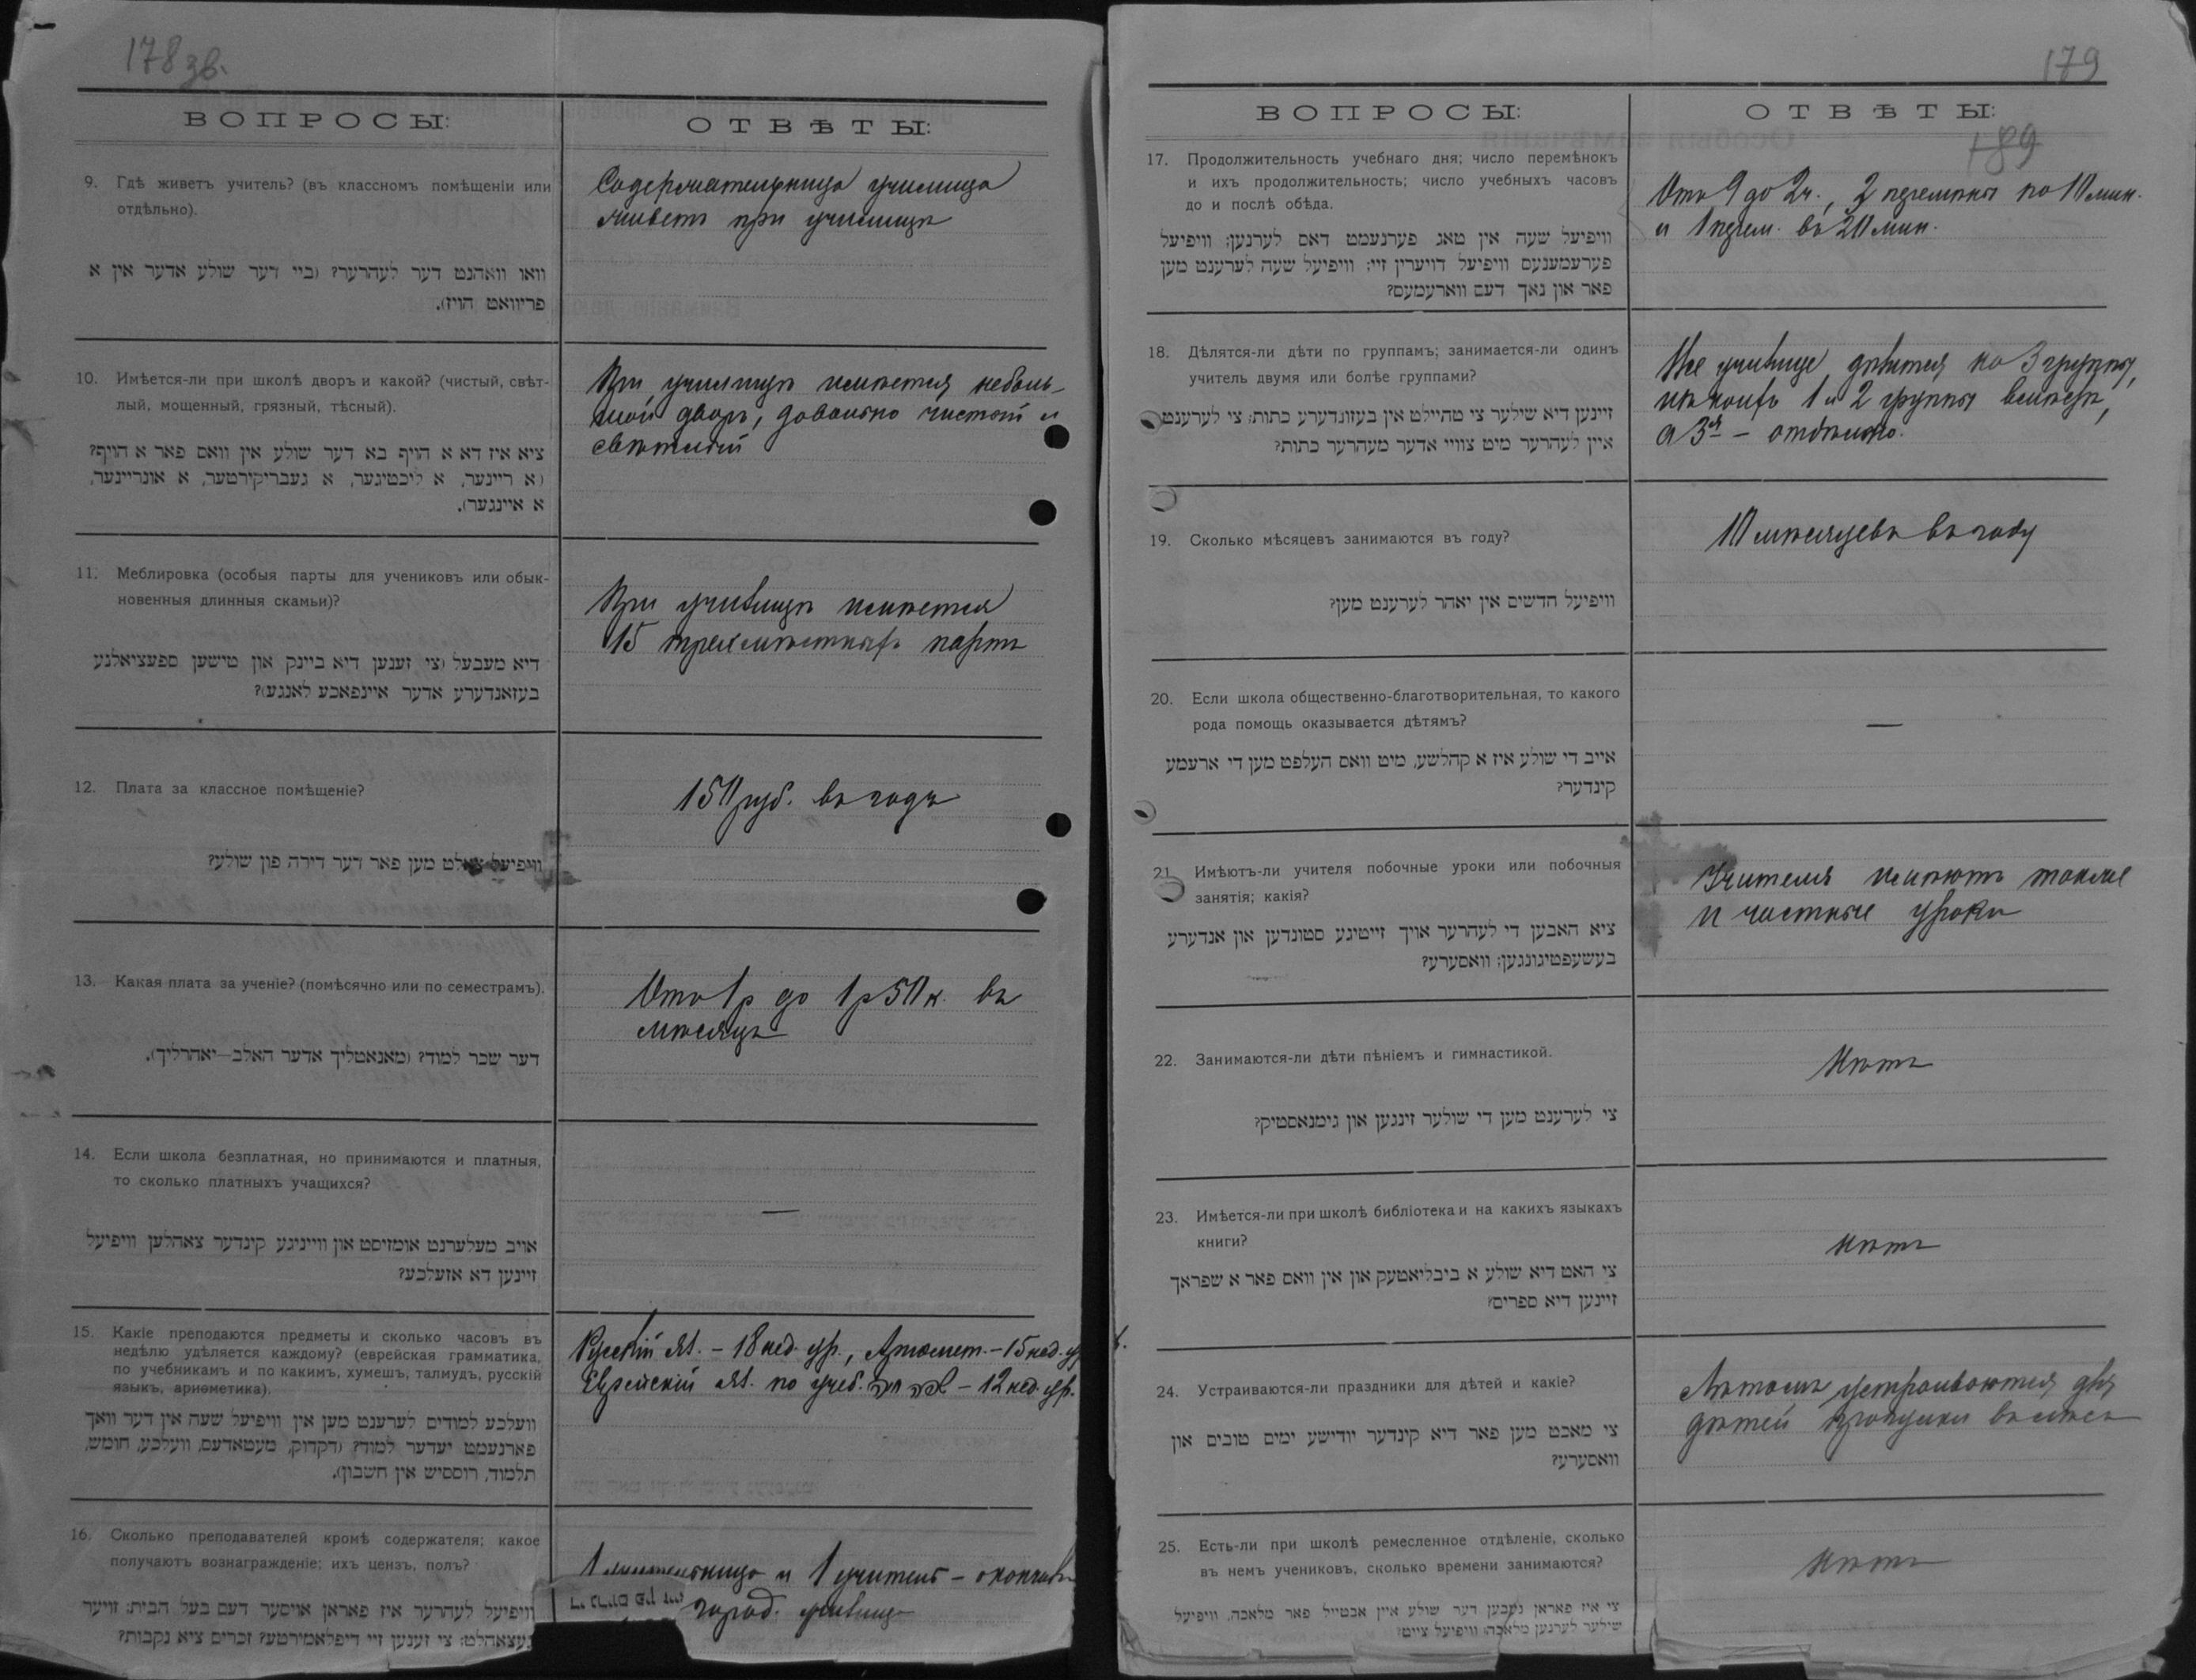 178 зв.
ВОПРОСЫ:
ОТВѢТЫ:
9. Гдѣ живетъ учитель? (въ классномъ помѣщеніи или
отдѣльно).
וואו וואהנט דער לעהרער? (ביי דער שולע אדער אין א
פריוואט הויז).
Содержательница училища
живетъ при училищѣ
10. Имѣется-ли при школѣ дворъ и какой? (чистый, свѣт-
лый, мощенный, грязный, тѣсный).
ציא איז דא א הויף בא דער שולע אין וואס פאר א הויף?
(א ריינער, א ליכטיגער, א געבריקירטער, א אונריינער,
א איינגער).
При училищѣ имѣется неболь-
шой дворъ, довольно чистый и
свѣтлый
11. Меблировка (особыя парты для учениковъ или обык-
новенныя длинныя скамьи)?
דיא מעבעל (צי זענען דיא ביינק און טישען ספעציאלנע
בעזאנדערע אדער איינפאכע לאנגע)?
При училищѣ имѣется
15 трехмѣстныхъ партъ
12. Плата за классное помѣщеніе?
וויפיעל צאלט מען פאר דער דירה פון שולע?
150 руб. въ годъ
13. Какая плата за ученіе? (помѣсячно или по семестрамъ).
דער שכר למוד? (מאנאטליך אדער האלב—יאהרליך).
Отъ 1 р до 1 р 50 к. въ
мѣсяцъ
14. Если школа безплатная, но принимаются и платныя,
то сколько платныхъ учащихся?
אויב מעלערנט אומזיסט און ווייניגע קינדער צאהלען וויפיעל
זיינען דא אזעלכע?
—
15. Какіе преподаются предметы и сколько часовъ въ
недѣлю удѣляется каждому? (еврейская грамматика,
по учебникамъ и по какимъ, хумешъ, талмудъ, русскій
языкъ, ариѳметика).
וועלכע למודים לערענט מען אין וויפיעל שעה אין דער וואך
פארנעמט יעדער למוד? (דקדוק, מעטאדעס, וועלכע, חומש,
תלמוד, רוססיש אין חשבון).
Русскій яз. – 18 нед. ур., Ариѳмет. – 15 нед. у
Еврейскій яз. по учеб. – 12 нед. ур.
16. Сколько преподавателей кромѣ содержателя; какое
получаютъ вознагражденіе; ихъ цензъ, полъ?
וויפיעל לעהרער איז פאראן אויסער דעם בעל הבית: זויער
געצאהלט: צי זענען זיי דיפלאמירטע? זכרים ציא נקבות?
1 учительница и 1 учитель – окончив
город. училищ
179
ВОПРОСЫ:
ОТВѢТЫ:
189
17. Продолжительность учебнаго дня; число перемѣнокъ
и ихъ продолжительность; число учебныхъ часовъ
до и послѣ обѣда.
וויפיעל שעה אין טאג פערנעמט דאס לערנען: וויפיעל
פערעמענעס וויפיעל דויערין זיי: וויפיעל שעה לערענט מען
פאר און נאך דעם ווארעמעס?
Отъ 9 до 2 ч., 2 перемѣны по 10 мин.
и 1 перем. въ 20 мин.
18. Дѣлятся-ли дѣти по группамъ; занимается-ли одинъ
учитель двумя или болѣе группами?
זיינען דיא שילער צי טהיילט אין בעזונדערע כתות: צי לערענט
איין לעהרער מיט צוויי אדער מעהרער כתות?
Все училище дѣлится на 3 группы,
изъ коихъ 1 и 2 группы вмѣстѣ,
а 3я – отдѣльно.
19. Сколько мѣсяцевъ занимаются въ году?
וויפיעל חדשים אין יאהר לערענט מען?
10 мѣсяцевъ въ году
20. Если школа общественно-благотворительная, то какого
рода помощь оказывается дѣтямъ?
אייב די שולע איז א קהלשע, מיט וואס העלפט מען די ארעמע
קינדער?
—
21. Имѣютъ-ли учителя побочные уроки или побочныя
занятія; какія?
ציא האבען די לעהרער אויך זייטיגע סטונדען און אנדערע
בעשעפטיגונגען: וואסערע?
Учителя имѣютъ также
и частные уроки
22. Занимаются-ли дѣти пѣніемъ и гимнастикой.
צי לערענט מען די שולער זינגען און גימנאסטיק?
Нѣтъ
23. Имѣется-ли при школѣ библіотека и на какихъ языкахъ
книги?
צי האט דיא שולע א ביבליאטעק און אין וואס פאר א שפראך
זיינען דיא ספרים?
Нѣтъ
24. Устраиваются-ли праздники для дѣтей и какіе?
צי מאכט מען פאר דיא קינדער יודישע ימים טובים און
וואסערע?
Лѣтомъ устраиваются для
дѣтей прогулки въ лѣсъ
25. Есть-ли при школѣ ремесленное отдѣленіе, сколько
въ немъ учениковъ, сколько времени занимаются?
צי איז פאראן נעבען דער שולע איין אבטייל פאר מלאכה, וויפיעל
שילער לערנען מלאכה: וויפיעל צייט?
Нѣтъ